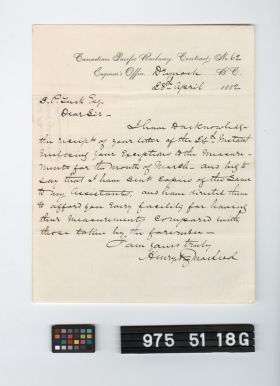 Canadian Pacific Railway, Contract No 62
Engineer's Office. Drynock B.C.
28th April 1882
Esq.
Dear Sir -
I have to acknowledge
the receipt of your letter of the 26th Instant
Enclosing your Exceptions to the Measure-
ments for the Month of March - and beg to
say that I have Sent Copies of the Same
to my Assistants, and have directed them
to afford you Every facility for having
their Measurements Compared with
those taken by the foremen -
I am yours truly
Henry
975 51 18G